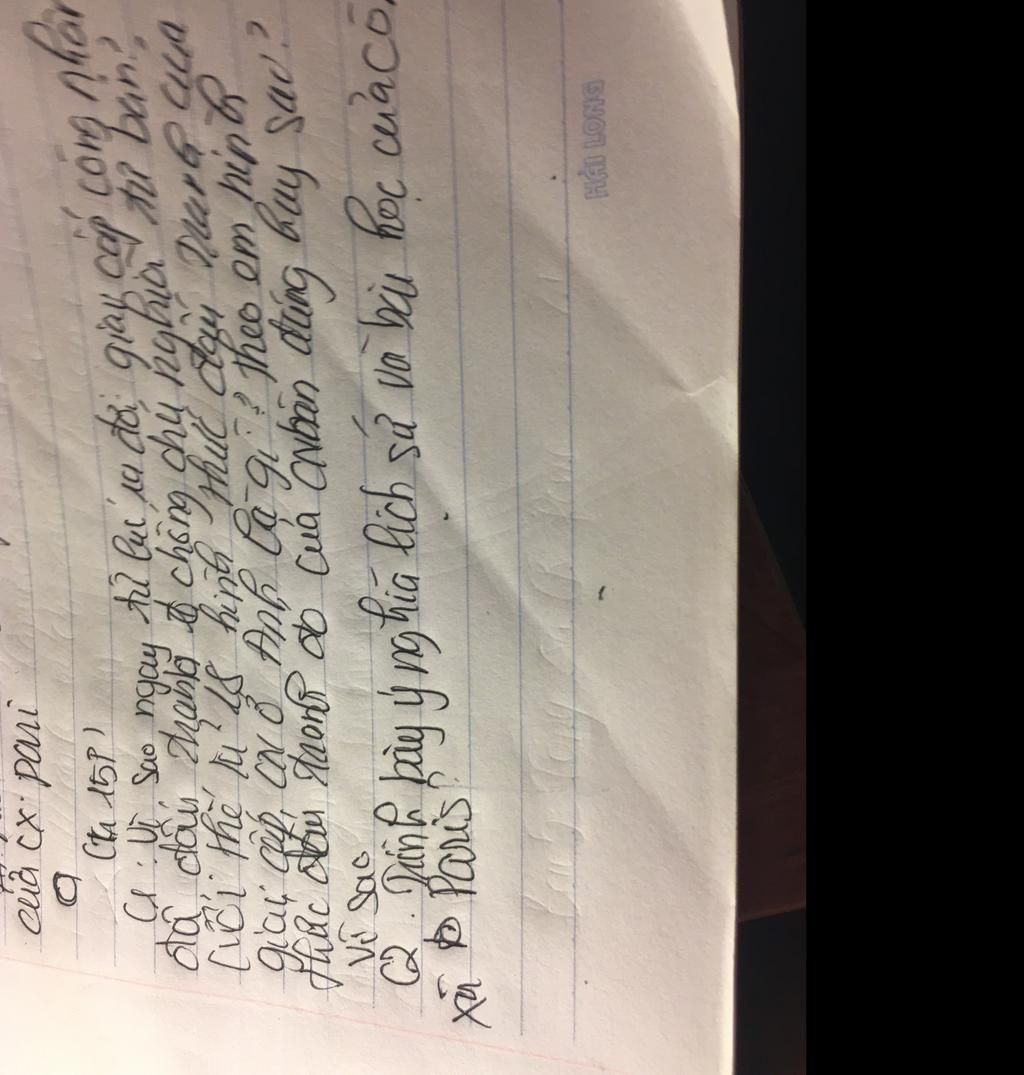 của CX. pari
(Ktr 15P)
C1. Vì sao ngay từ lúc ra đời giai cấp công nhân
đã đấu tranh chống chủ nghĩa tư bản?
Lối thế kỉ 18 hình thức đấu tranh của
giai cấp CN ở Anh là gì? theo em hình
thức đấu tranh đó của CNhân đúng hay sai?
Vì sao
C2. Trình bày ý nghĩa lịch sử và bài học của cô
xã Paris?
HẢI LONG